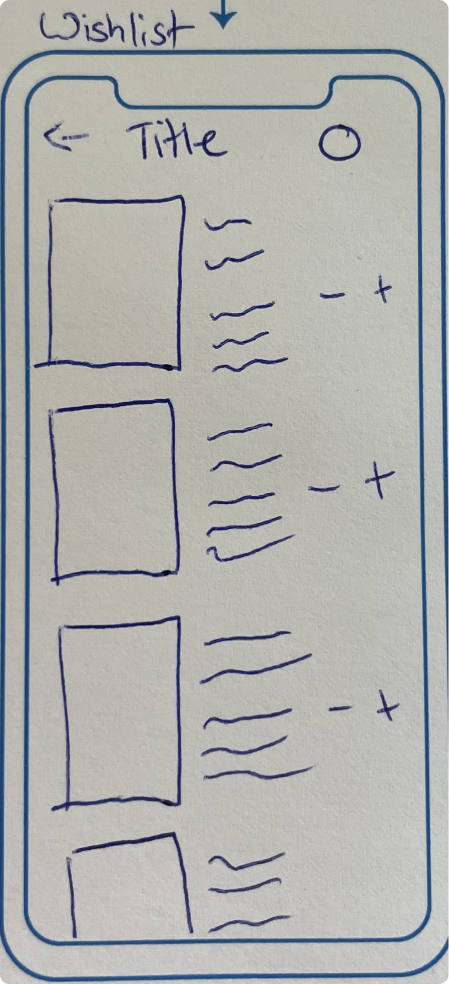 Wishlist
← Title
- +
- +
- +